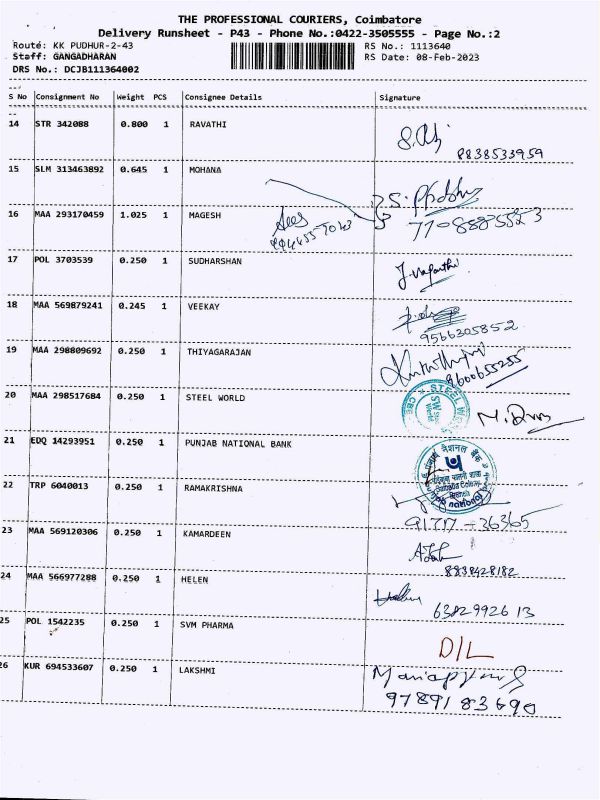 THE PROFESSIONAL COURIERS, Coimbatore
Delivery Runsheet - P43 - Phone No.:0422-3505555 - Page No.:2
Route: KK PUDHUR-2-43 RS No.: 1113640
Staff: GANGADHARAN RS Date: 08-Feb-2023
DRS No.: DCJB111364002
S No Consignment No Weight PCS Consignee Details Signature
14 STR 342088 0.800 1 RAVATHI
8838533959
15 SLM 313463892 0.645 1 MOHANA
16 MAA 293170459 1.025 1 MAGESH
17 POL 3703539 0.250 1 SUDHARSHAN
18 MAA 569879241 0.245 1 VEEKAY
9566305852
19 MAA 298809692 0.250 1 THIYAGARAJAN
9600655255
20 MAA 298517684 0.250 1 STEEL WORLD
21 EDQ 14293951 0.250 1 PUNJAB NATIONAL BANK
22 TRP 6040013 0.250 1 RAMAKRISHNA
23 MAA 569120306 0.250 1 KAMARDEEN
8838428182
24 MAA 566977288 0.250 1 HELEN
6382992613
25 POL 1542235 0.250 1 SVM PHARMA
D/L
26 KUR 694533607 0.250 1 LAKSHMI
9789183690